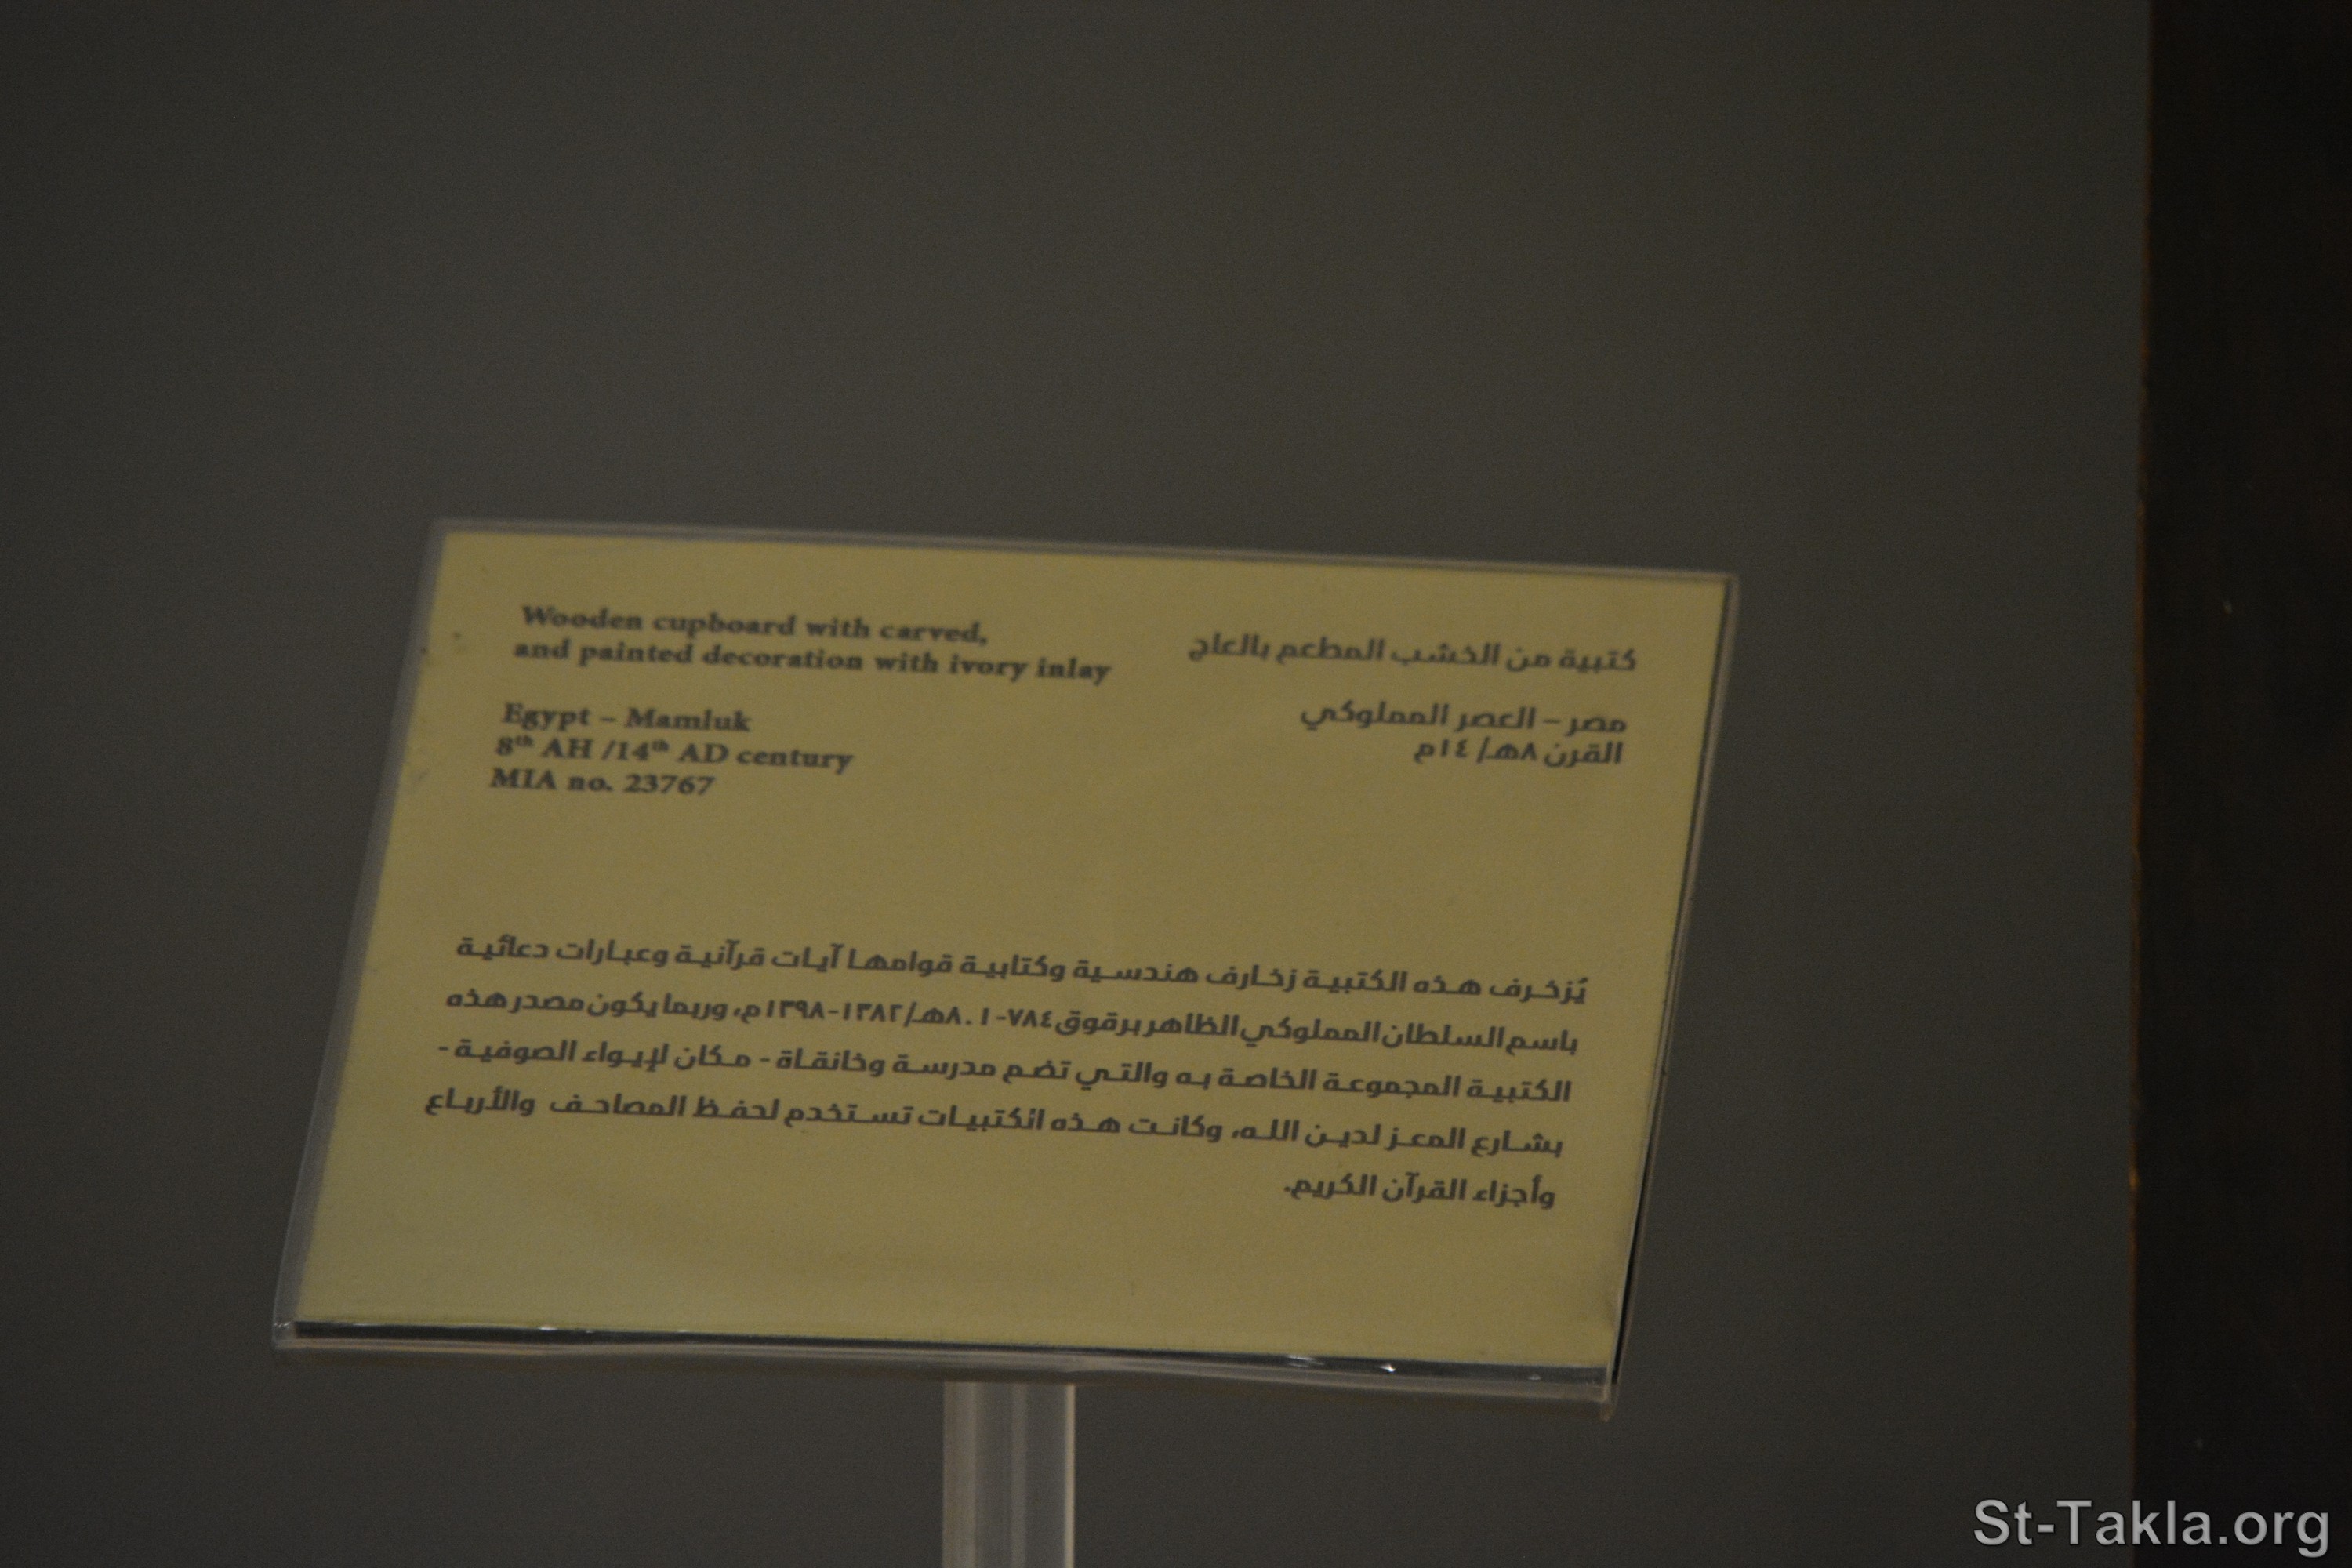 Wooden cupboard with carved,
and painted decoration with ivory inlay
Egypt – Mamluk
8th AH /14th AD century
MIA no. 23767
كتبية من الخشب المطعم بالعاج
مصر – العصر المملوكي
القرن ٨هـ/ ١٤م
يُزخرف هذه الكتبية زخارف هندسية وكتابية قوامها آيات قرآنية وعبارات دعائية
باسم السلطان المملوكي الظاهر برقوق ٧٨٤-٨٠١هـ/١٣٨٢-١٣٩٨م، وربما يكون مصدر هذه
الكتبية المجموعة الخاصة به والتي تضم مدرسة وخانقاة - مكان لإيواء الصوفية -
بشارع المعز لدين الله، وكانت هذه الكتبيات تستخدم لحفظ المصاحف والأرباع
وأجزاء القرآن الكريم.
St-Takla.org